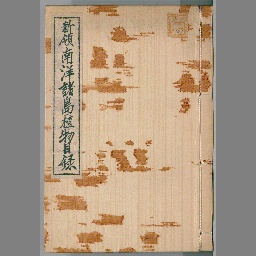 新領南洋諸島植物目録